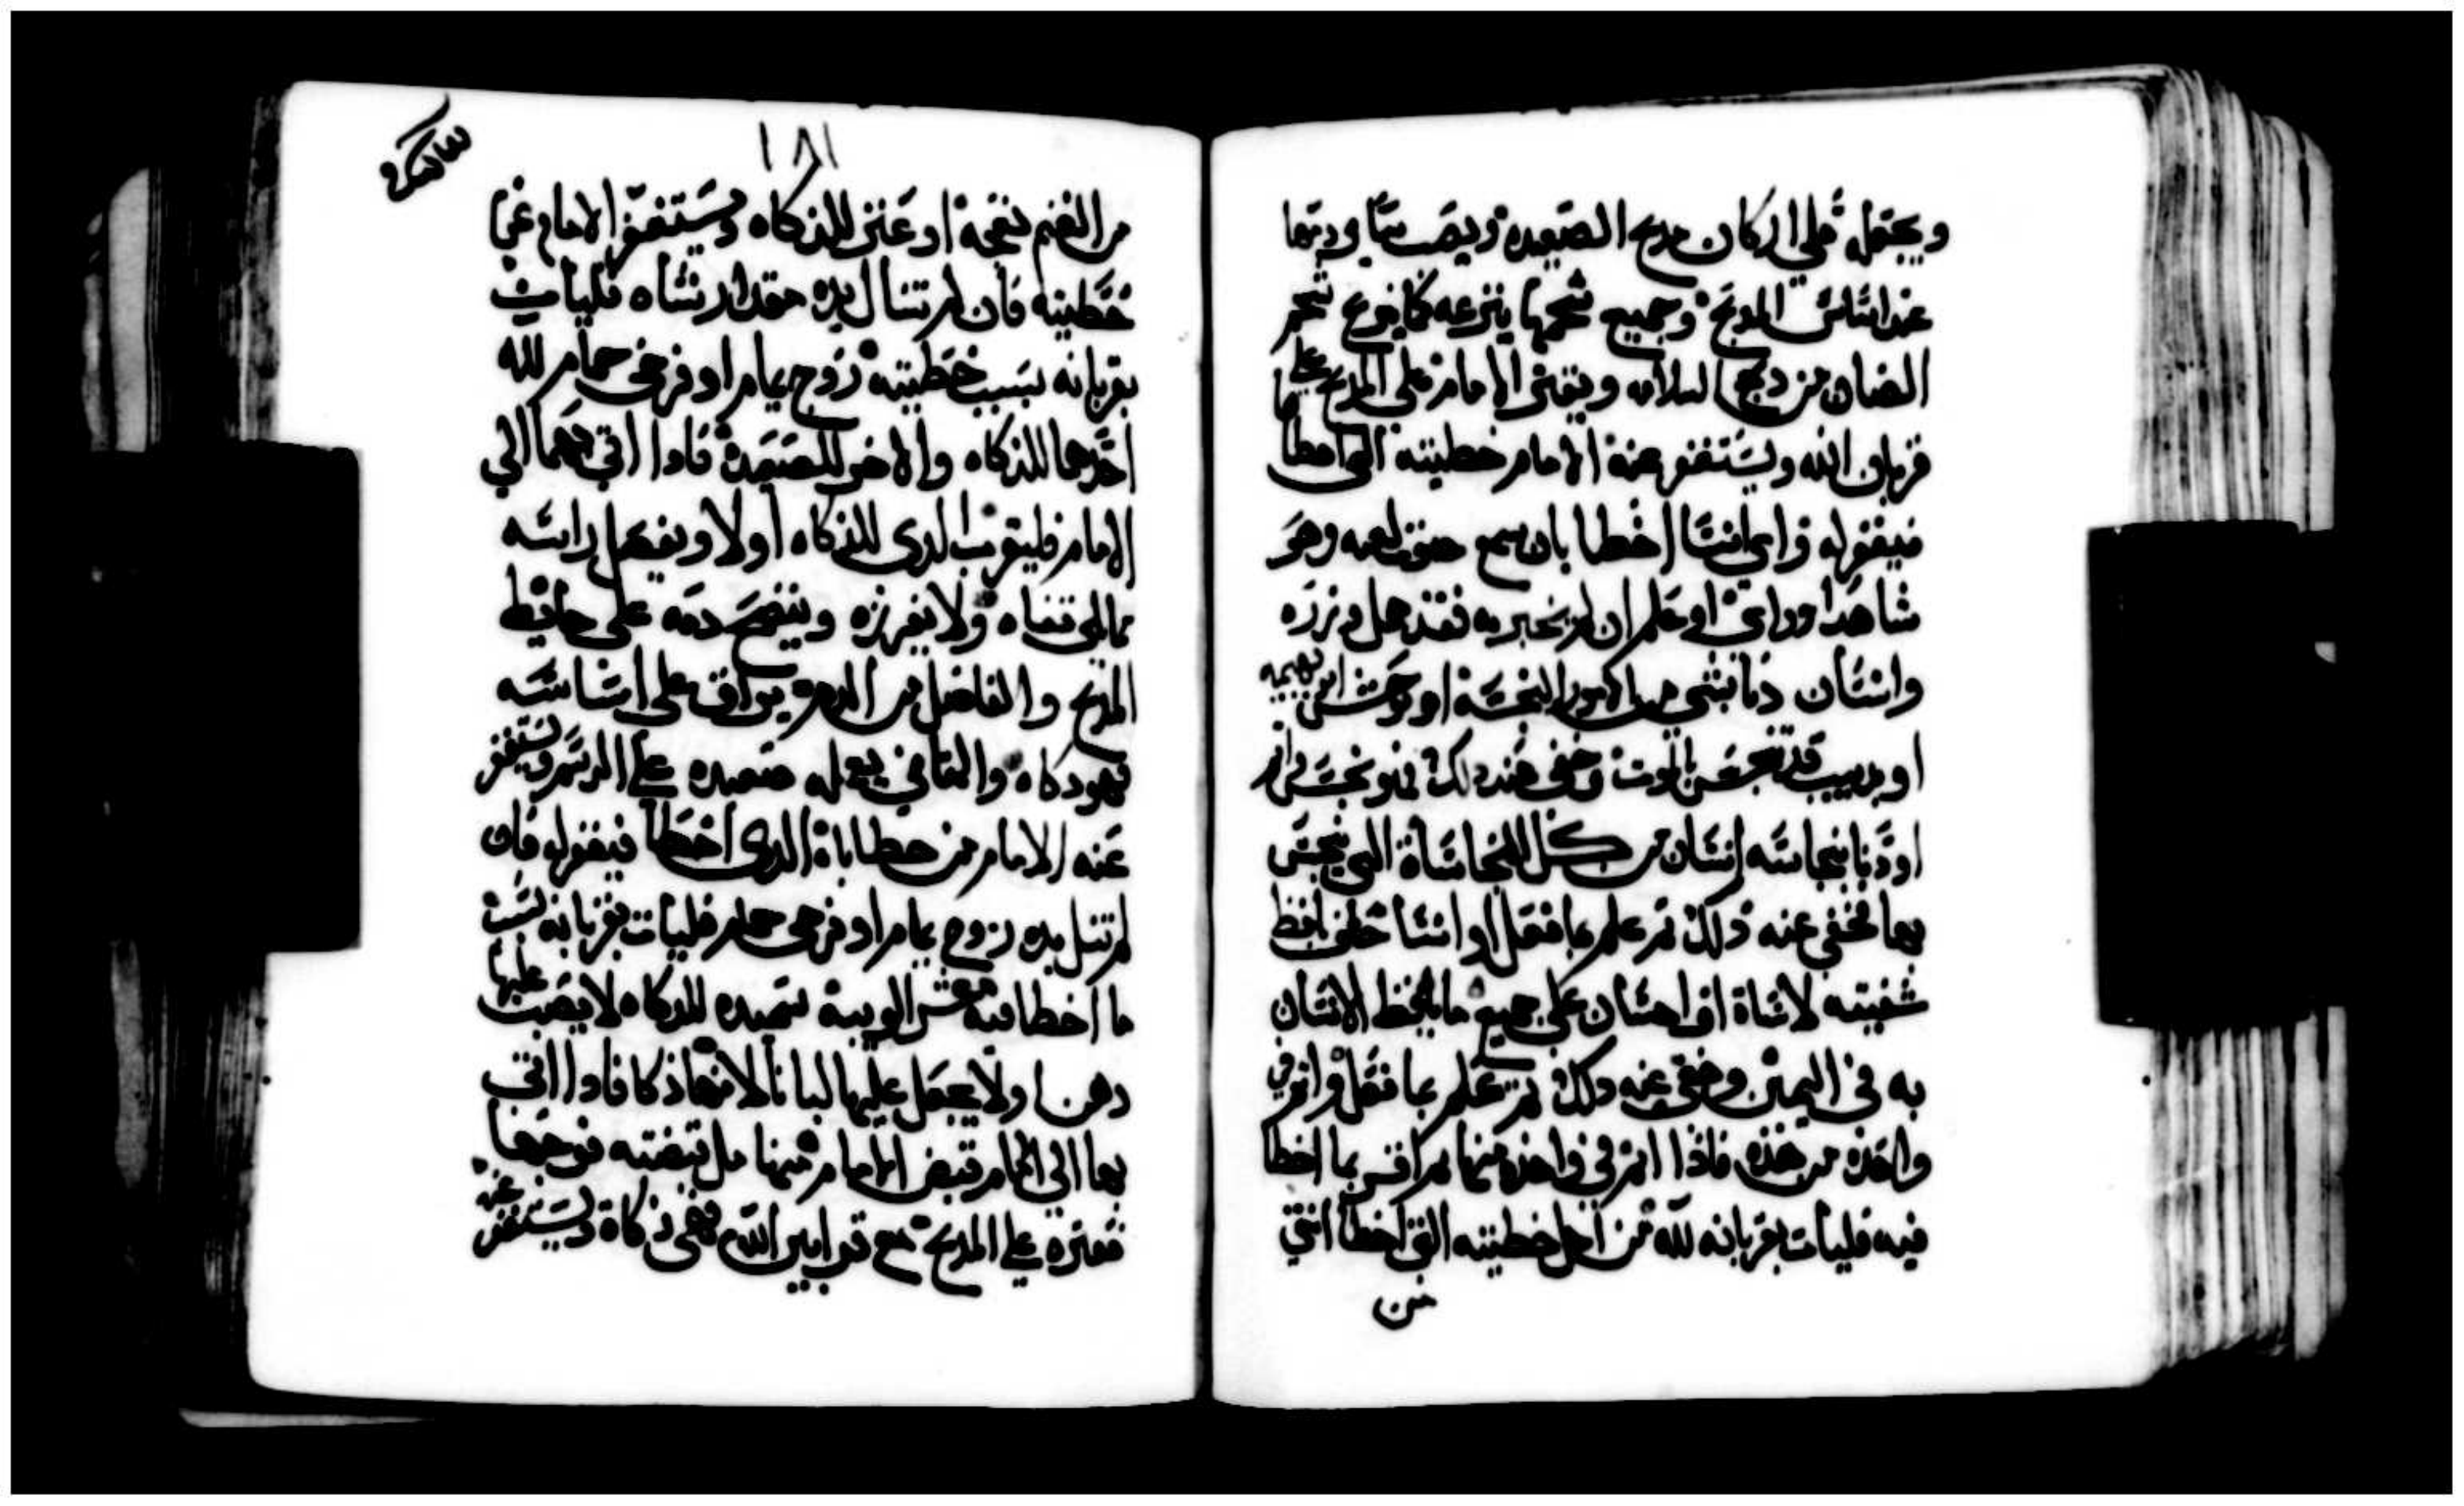 ويجعله علي اركان مدبح الصعيده ويصب باقي دمها
عند اساس المدبح وجميع شحمها ينزعه كما ينزع شحم
الضان من دبح السلامه ويقتر الامام علي المدبح علي
قربان الله ويستغفر عنه الامام خطيته التي اخطا
فيغفر له واي انسا اخطا بان سمع صوت لعنه وهو
شاهدا وراي او علم ان لم يخبر به فقد حمل وزره
وانسان دنا بشي من الامور النجسه او وحش او بهيمه
او دبيب قد نجس بالموت وخفي عنه دلك فهو نجس قد اثم
او دنا بنجاسه انسان من كل النجاساة التي ينجس
بها فخفي عنه دلك ثم علم بما فعل او انسا حلف بلفظ
شفتيه لاساة او احسان علي جميع ما يلفظ الانسان
به في اليمين وخفي عنه دلك ثم علم بما فعل واثم في
واحده من هذه فاذا اثم في واحده منها ثم اقر بما اخطا
فيه فليات بقربانه لله من اجل خطيته التي اخطا انثي
من
١٨١
من الغنم نعجه او عنز للذكاه ويستغفر الامام عن
خطيته فان لم تنال يده مقدار شاه فليات
بقربانه بسبب خطيته زوج يمام او فرخي حمام لله
احدهما للذكاه والاخر للصعيده فادا اتي بهما الي
الامام فليقرب الدي للذكاه اولا ويفصل راسه
مما يلي قفاه ولا يفرزه وينضح دمه علي حايط
المدبح والفاضل من الدم يراق علي اساسه
فهو دكاه والثاني يعمله صعيده علي الرسم ويستغفر
عنه الامام من خطاياة الدي اخطا فيغفر له فان
لم تنل يده زوج يمام او فرخي حمام فليات بقربانه بسبب
ما اخطا فيه عشر الويبه سميده للدكاه لا يصب عليها
دهن ولا يجعل عليها لبانا لانها ذكا فادا اتي
بها الي الامام قبض الامام منها مل قبضته
فقتره علي المدبح مع قرابين الله فهي ذكاة ويستغفر عنه